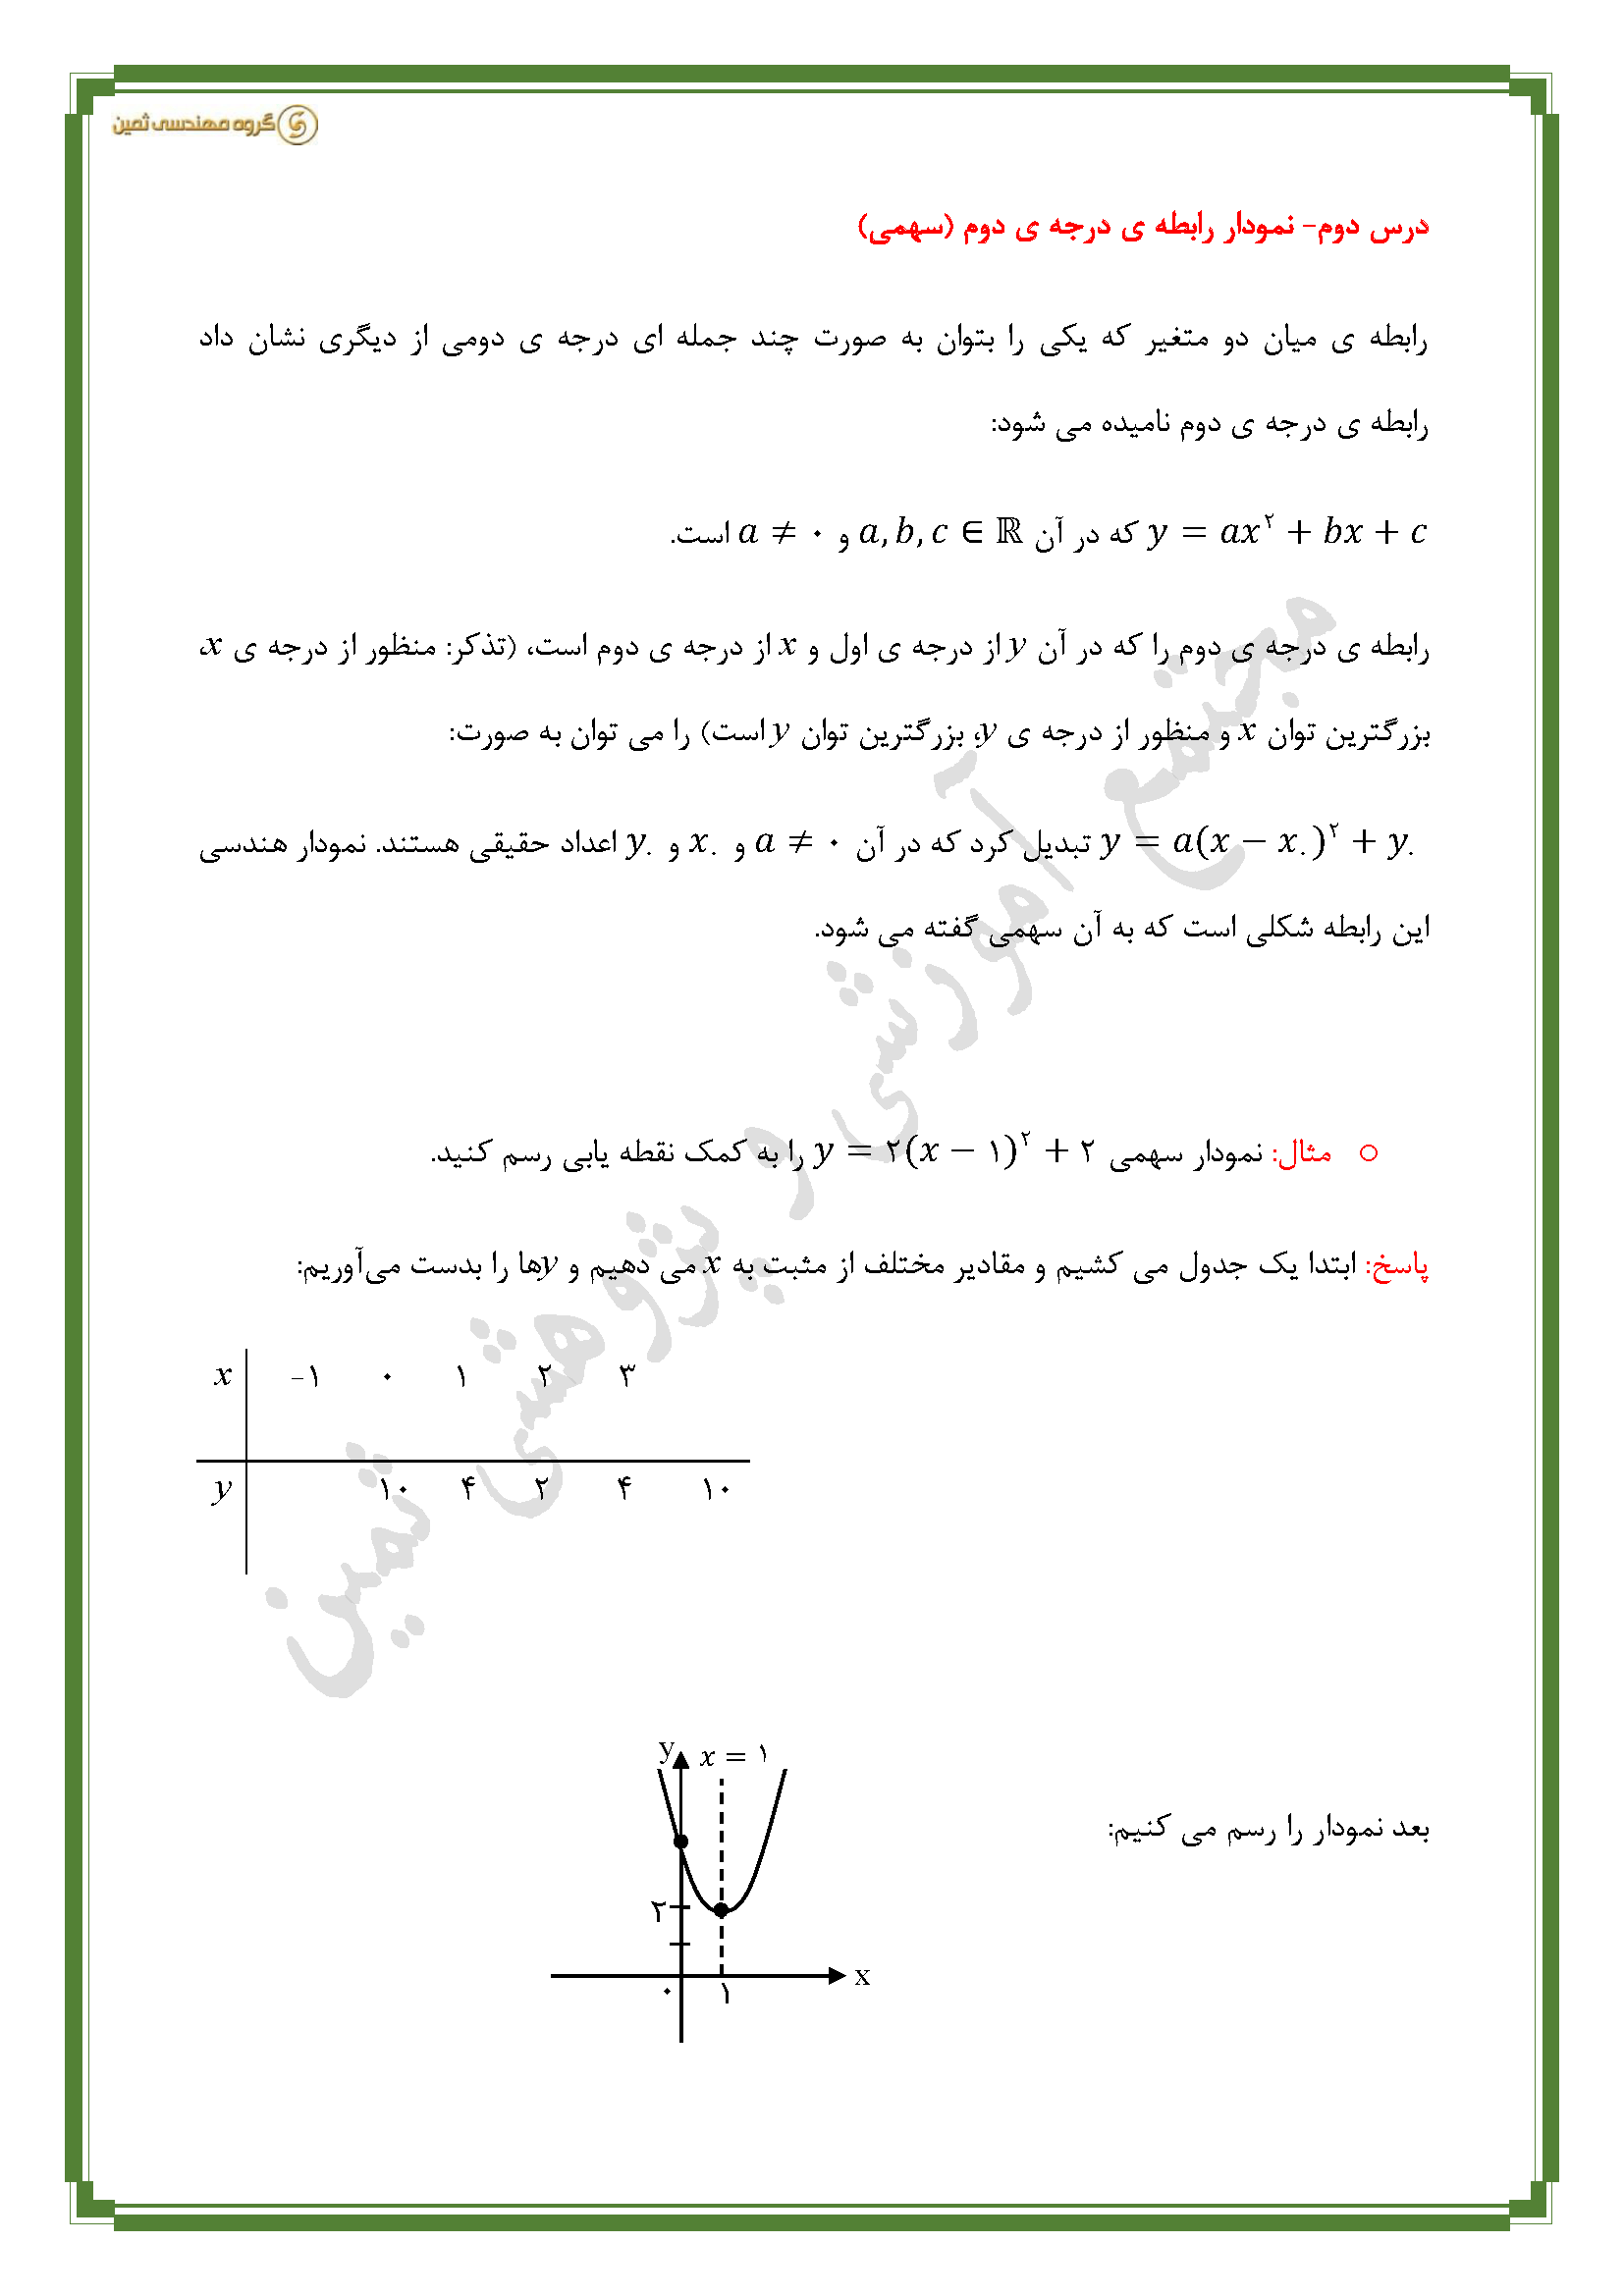 گروه مهندسی ثمین
درس دوم- نمودار رابطه ی درجه ی دوم (سهمی)
رابطه ی میان دو متغیر که یکی را بتوان به صورت چند جمله ای درجه ی دومی از دیگری نشان داد
رابطه ی درجه ی دوم نامیده می شود:
y = ax^۲ + bx + c که در آن a, b, c ∈ ℝ و a ≠ ۰ است.
رابطه ی درجه ی دوم را که در آن y از درجه ی اول و x از درجه ی دوم است، (تذکر: منظور از درجه ی x،
بزرگترین توان x و منظور از درجه ی y، بزرگترین توان y است) را می توان به صورت:
y = a(x − x۰)^۲ + y۰ تبدیل کرد که در آن a ≠ ۰ و x۰ و y۰ اعداد حقیقی هستند. نمودار هندسی
این رابطه شکلی است که به آن سهمی گفته می شود.
○ مثال: نمودار سهمی y = ۲(x − ۱)^۲ + ۲ را به کمک نقطه یابی رسم کنید.
پاسخ: ابتدا یک جدول می کشیم و مقادیر مختلف از مثبت به x می دهیم و yها را بدست می‌آوریم:
x -۱ ۰ ۱ ۲ ۳
y ۱۰ ۴ ۲ ۴ ۱۰
y x = ۱
بعد نمودار را رسم می کنیم:
۲
x
۰ ۱
مجتمع آموزشی و پژوهشی ثمین